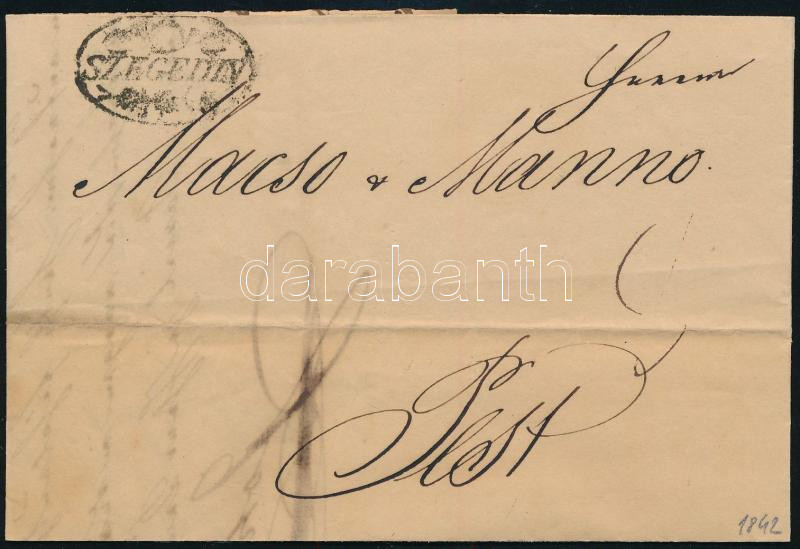 SZEGEDIN
Herrn
Macso & Manno.
darabanth
Pest
1842